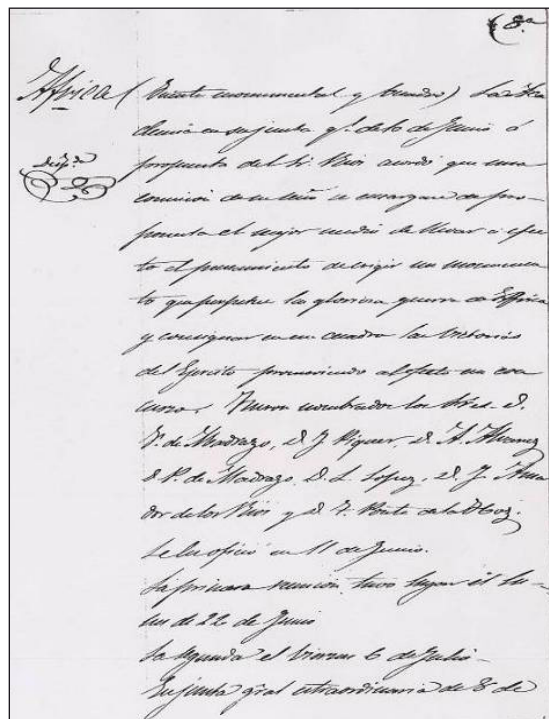 8ª
Africa (Puente monumental y cuadro) La Aca
demia en su junta gl. de 10 de Junio á
propuesta del Sr. Rios acordó que una
comision de su seno se encargase de pro-
ponerla el mejor medio de llevar á efec
to el pensamiento de erigir un monumen
to que perpetue la gloriosa guerra de Africa
y consignar en un cuadro las victorias
del Ejercito promoviendo al efecto un con
curso. Fueron nombrados los Sres. D.
F. de Madrazo, D. J Piquer, D. A. Alvarez
D P. de Madrazo, D. L. Lopez, D. J. Ama
dor de los Rios y D F. Ponte de la Hoz.
Se les ofició en 11 de Junio.
La primera reunion tuvo lugar el lu-
nes de 22 de Junio
La segunda el viernes 6 de Julio-
En junta gral extraordinaria de 8 de